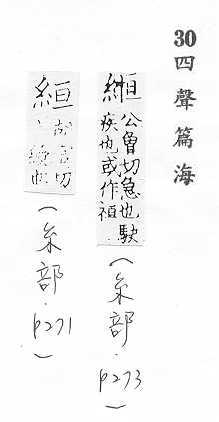 30四聲篇海
緪公曾切急也駛
疾也或作𥾡
(糸部.p273)
絙
切
(糸部.p271)